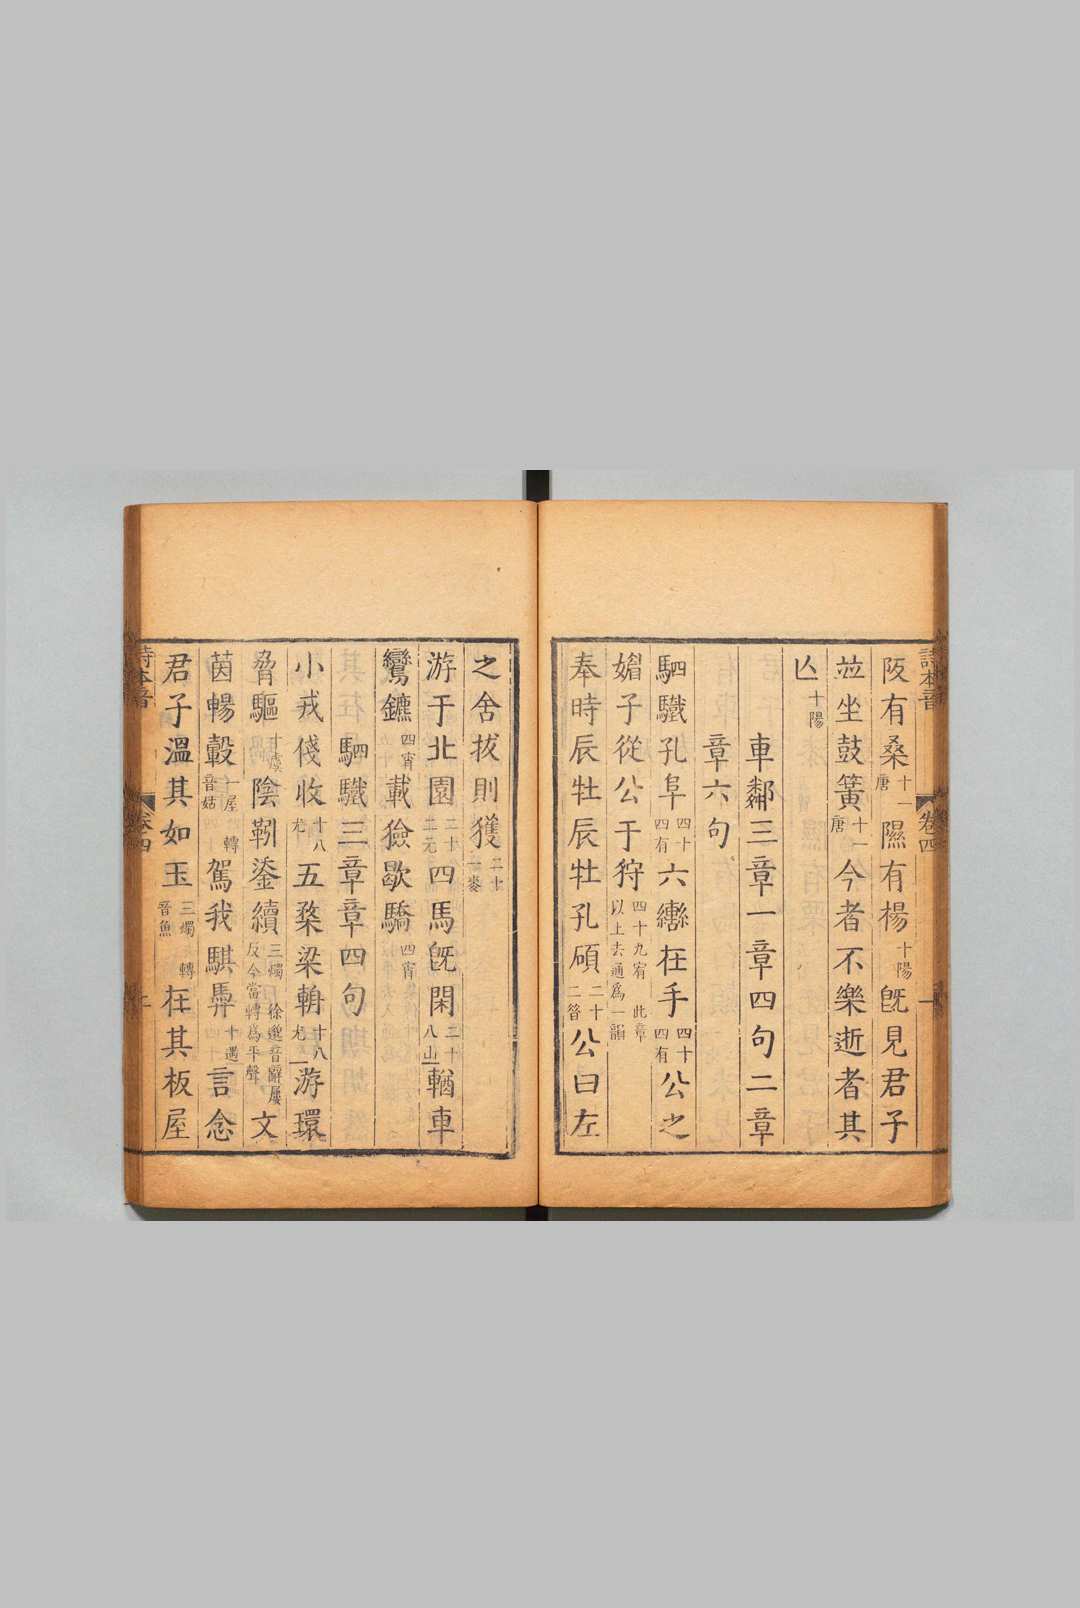 阪有桑十一唐隰有楊十陽旣見君子
竝坐鼓簧十一唐今者不樂逝者其
亾十陽
車鄰三章一章四句二章
章六句
駟驖孔阜四十四有六轡在手四十四有公之
媚子從公于狩四十九宥此章以上去通爲一韻
奉時辰牡辰牡孔碩二十二昔公曰左
之舍拔則獲二十一麥
游于北園二十二元四馬旣閑二十八山輶車
鸞鑣四宵載獫歇驕四宵
駟驖三章章四句
小戎俴收十八尤五楘梁輈十八尤游環
脅驅十虞陰靷鋈續三燭徐邈音辭屢反今當轉爲平聲文
茵暢轂一屋轉音姑駕我騏馵十遇言念
君子溫其如玉三燭轉音魚在其板屋
詩本音
卷四
詩本音
卷四